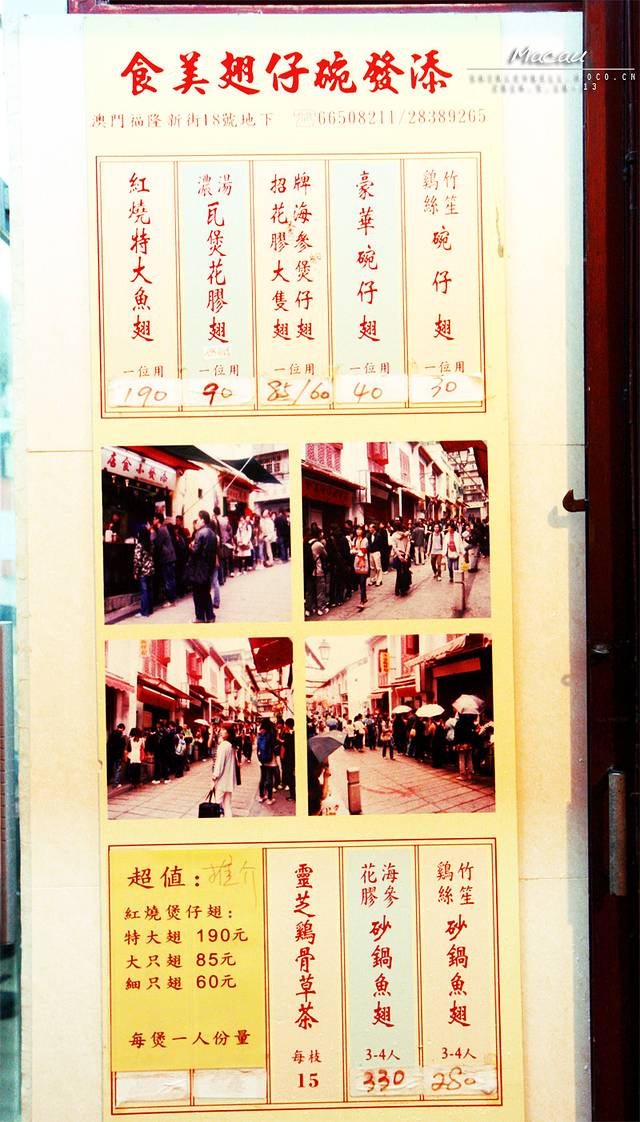 Macau
OCO.CN
13
添發碗仔翅美食
澳門福隆新街18號地下 ☏66508211/28389265
竹笙
鷄絲
碗仔翅
一位用
30
豪華碗仔翅
一位用
40
招牌
海參煲仔翅
花膠大隻翅
一位用
85/60
濃湯
瓦煲花膠翅
一位用
90
紅燒特大魚翅
一位用
190
竹笙
鷄絲
砂鍋魚翅
3-4人
280
海參
花膠
砂鍋魚翅
3-4人
330
靈芝鷄骨草茶
每枝
15
超值：推介
紅燒煲仔翅：
特大翅 190元
大只翅 85元
細只翅 60元
每煲一人份量